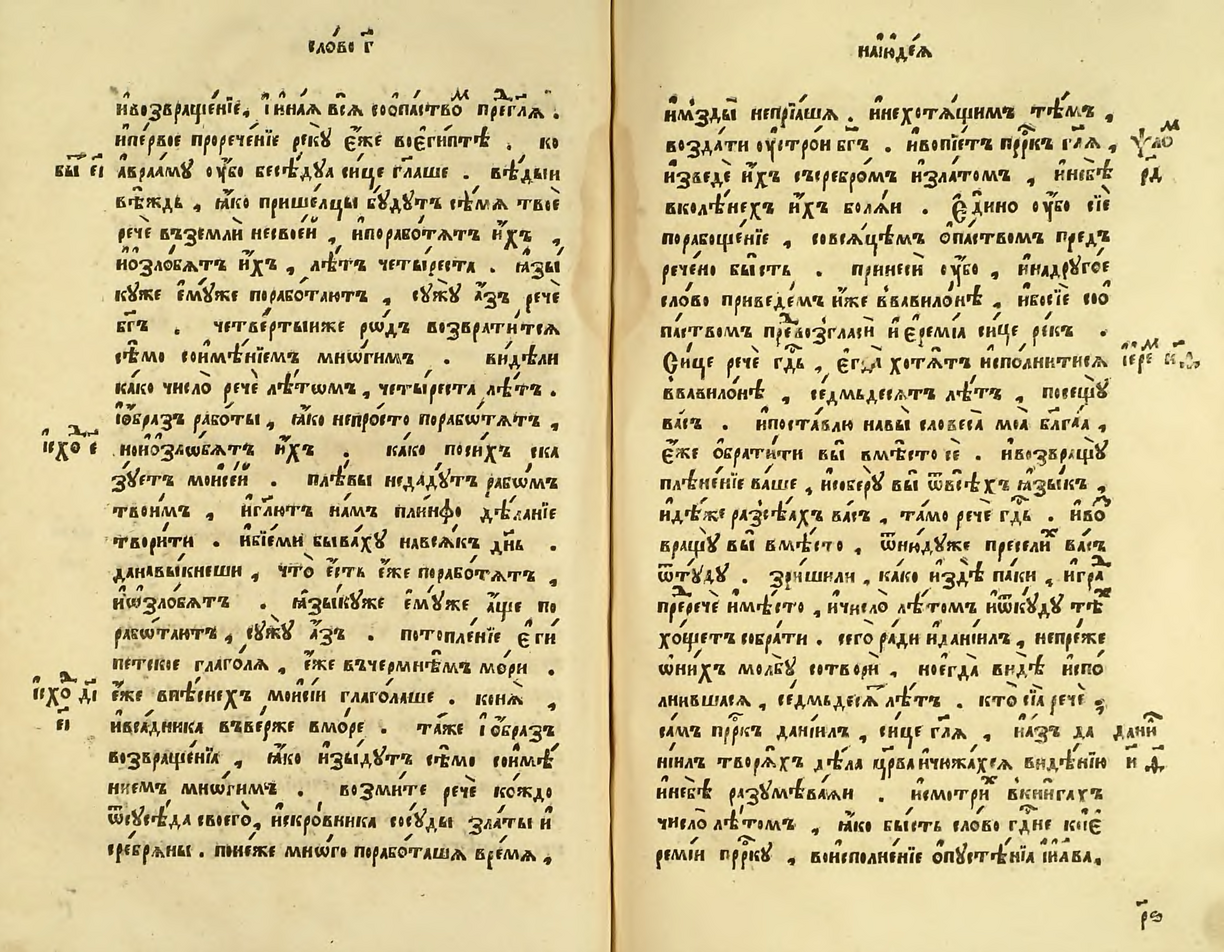 сло́во г҃
и҆возвраще́нїе, і҆ и҆на́ѧ всѧ̀ соѡпа́ствоⷨ преⷣгл҃ѧ .
и҆пе́рвое проречѐнїе рекꙋ̀ є҆́же воє҆ги́птѣ . ко
бы́ⷮ е҃і
а҆враа́мꙋ ᲂу҆́бо бесѣ́дꙋѧ си́це гл҃аше . вѣ́дыи
вѣ́ждь , ꙗ҆́ко прише́лцы бꙋ́дꙋтъ сѣ́мѧ твоѐ
речѐ въземлѝ несвое́й , и҆порабо́тѧтъ и҆́хъ ,
и҆ѡзло́бѧтъ и҆́хъ , лѣ́тъ четы́реста . ꙗ҆зы́
кꙋже є҆мꙋ́же порабо́таютъ , сꙋжꙋ̀ а҆́зъ речѐ
бг҃ъ . четве́ртыиже ро́дъ возврати́тсѧ
сѣ́мо соимѣ́нїемъ мно́гимъ . ви́дѣли
ка́ко число̀ речѐ лѣ́томъ , четы́реста лѣ́тъ .
і҆ѻ҆́браз рабо́ты , ꙗ҆́ко непро́сто порабо́тѧтъ ,
и҆схоⷣ е҃
но и҆ѡзло́бѧтъ и҆́хъ . ка́ко поси́хъ ска
зꙋетъ моисе́й . пле́вы недадꙋ́тъ рабѡ́мъ
твои́мъ , и҆гл҃ютъ на́мъ пли́нфо дѣ́ланїе
твори́ти . и҆бїе́ми быва́хꙋ навсѧ́къ дн҃ь .
данавы́кнеши , что̀ є҆́сть є҆́же порабо́тѧтъ ,
и҆ѡзло́бѧтъ . ꙗ҆зы́кꙋже є҆мꙋ́же а҆́ще по
рабо́таютъ , сꙋжꙋ̀ а҆́зъ . потопле́нїе є҆ги
петское глаго́лѧ , є҆́же въчермнѣ́мъ мо́ри .
и҆схоⷣ д҃і
є҆́же впѣ́снехъ моисе́й глаго́лаше . конѧ̀ ,
е҃і
и҆вса́дника въве́рже вмо́ре . та́же і҆ѻ҆́бразъ
возвраще́нїѧ , ꙗ҆́ко и҆зы́дꙋтъ сѣ́мо соимѣ́
нїемъ мно́гимъ . возми́те речѐ ко́ждо
ѿсꙋсѣ́да своего̀, и҆скро́вника сосꙋ́ды зла́ты и҆
сре́брѧны . поне́же мно́го порабо́ташѧ вре́мѧ ,
наі҆ю҆де́ѧ
и҆мъзды̀ непрїѧ́шѧ . и҆нехотѧ́щимъ тѣ́мъ ,
возда́ти ᲂу҆стро́и бг҃ъ . и҆вопїе́тъ прⷪ҇ркъ гл҃ѧ ,
ѱало́ⷨ
и҆зведѐ и҆́хъ съсребро́мъ и҆зла́томъ , и҆небѣ̀
р҃д
вколѣ́нехъ и҆́хъ болѧ́й . є҆ди́но ᲂу҆́бо сїѐ
порабоще́нїе , совсѧ́цѣмъ ѻ҆па́ствомъ предъ
рече́но бы́сть . принесѝ ᲂу҆́бо , и҆надрꙋго́е
сло́во приведе́мъ и҆́же ввавило́нѣ , и҆босїѐ соѡ
па́ствомъ преⷣвозгласѝ и҆є҆ремі́а си́це ре́къ .
Си́це речѐ гд҇ь , є҆гда̀ хотѧ́тъ и҆спо́лнитисѧ
і҆ереⷨ к҃д
ввавило́нѣ , се́дмьдесѧтъ лѣ́тъ , посещꙋ̀
ва́съ . и҆поста́влю навы̀ словеса̀ моѧ̀ блг҃а́ѧ ,
є҆́же ѻ҆брати́ти вы̀ вмѣ́сто сѐ . и҆возвращꙋ̀
плѣне́нїе ва́ше , и҆соберꙋ̀ вы̀ ѿвсѣ́хъ ꙗ҆зы́къ ,
и҆дѣ́же разсѣ́ахъ ва́съ , та́мо речѐ гд҇ь . и҆воⷥ
вращꙋ̀ вы̀ вмѣ́сто , ѿнюдꙋ́же пресели́ⷯ ва́съ
ѿтꙋ́дꙋ . зри́шили , ка́ко и҆здѣ̀ па́ки , и҆граⷣ
преⷣречѐ и҆мѣ́сто , и҆число̀ лѣ́томъ и҆ѿкꙋ́дꙋ тѣⷯ
хо́щетъ собра́ти . сего̀ ра́ди и҆данїи́лъ , непре́же
ѻ҆ни́хъ молбꙋ̀ сотворѝ , ноегда̀ ви́дѣ и҆спо́
лнившасѧ , се́дмьдесѧⷮ лѣ́тъ . кто̀ сїѧ̀ речѐ ;
са́мъ прⷪ҇ркъ данїи́лъ , си́це гл҃ѧ , и҆а҆́зъ да
дани́ⷧ
нїи́лъ творѧ́хъ дѣ́ла цр҃ва и҆чюжа́хсѧ видѣ́нїю
и҃ д҃
и҆небѣ̀ разꙋмѣва́ѧи . и҆смотри́ⷯ вкни́гахъ
число̀ лѣ́томъ , ꙗ҆́ко бы́сть сло́во гд҇не кое҆
ремі́и прⷪ҇ркꙋ , воисполне́нїе ѻ҆пꙋстѣ́нїѧ і҆и҆л҃ва,
р҃ѕ